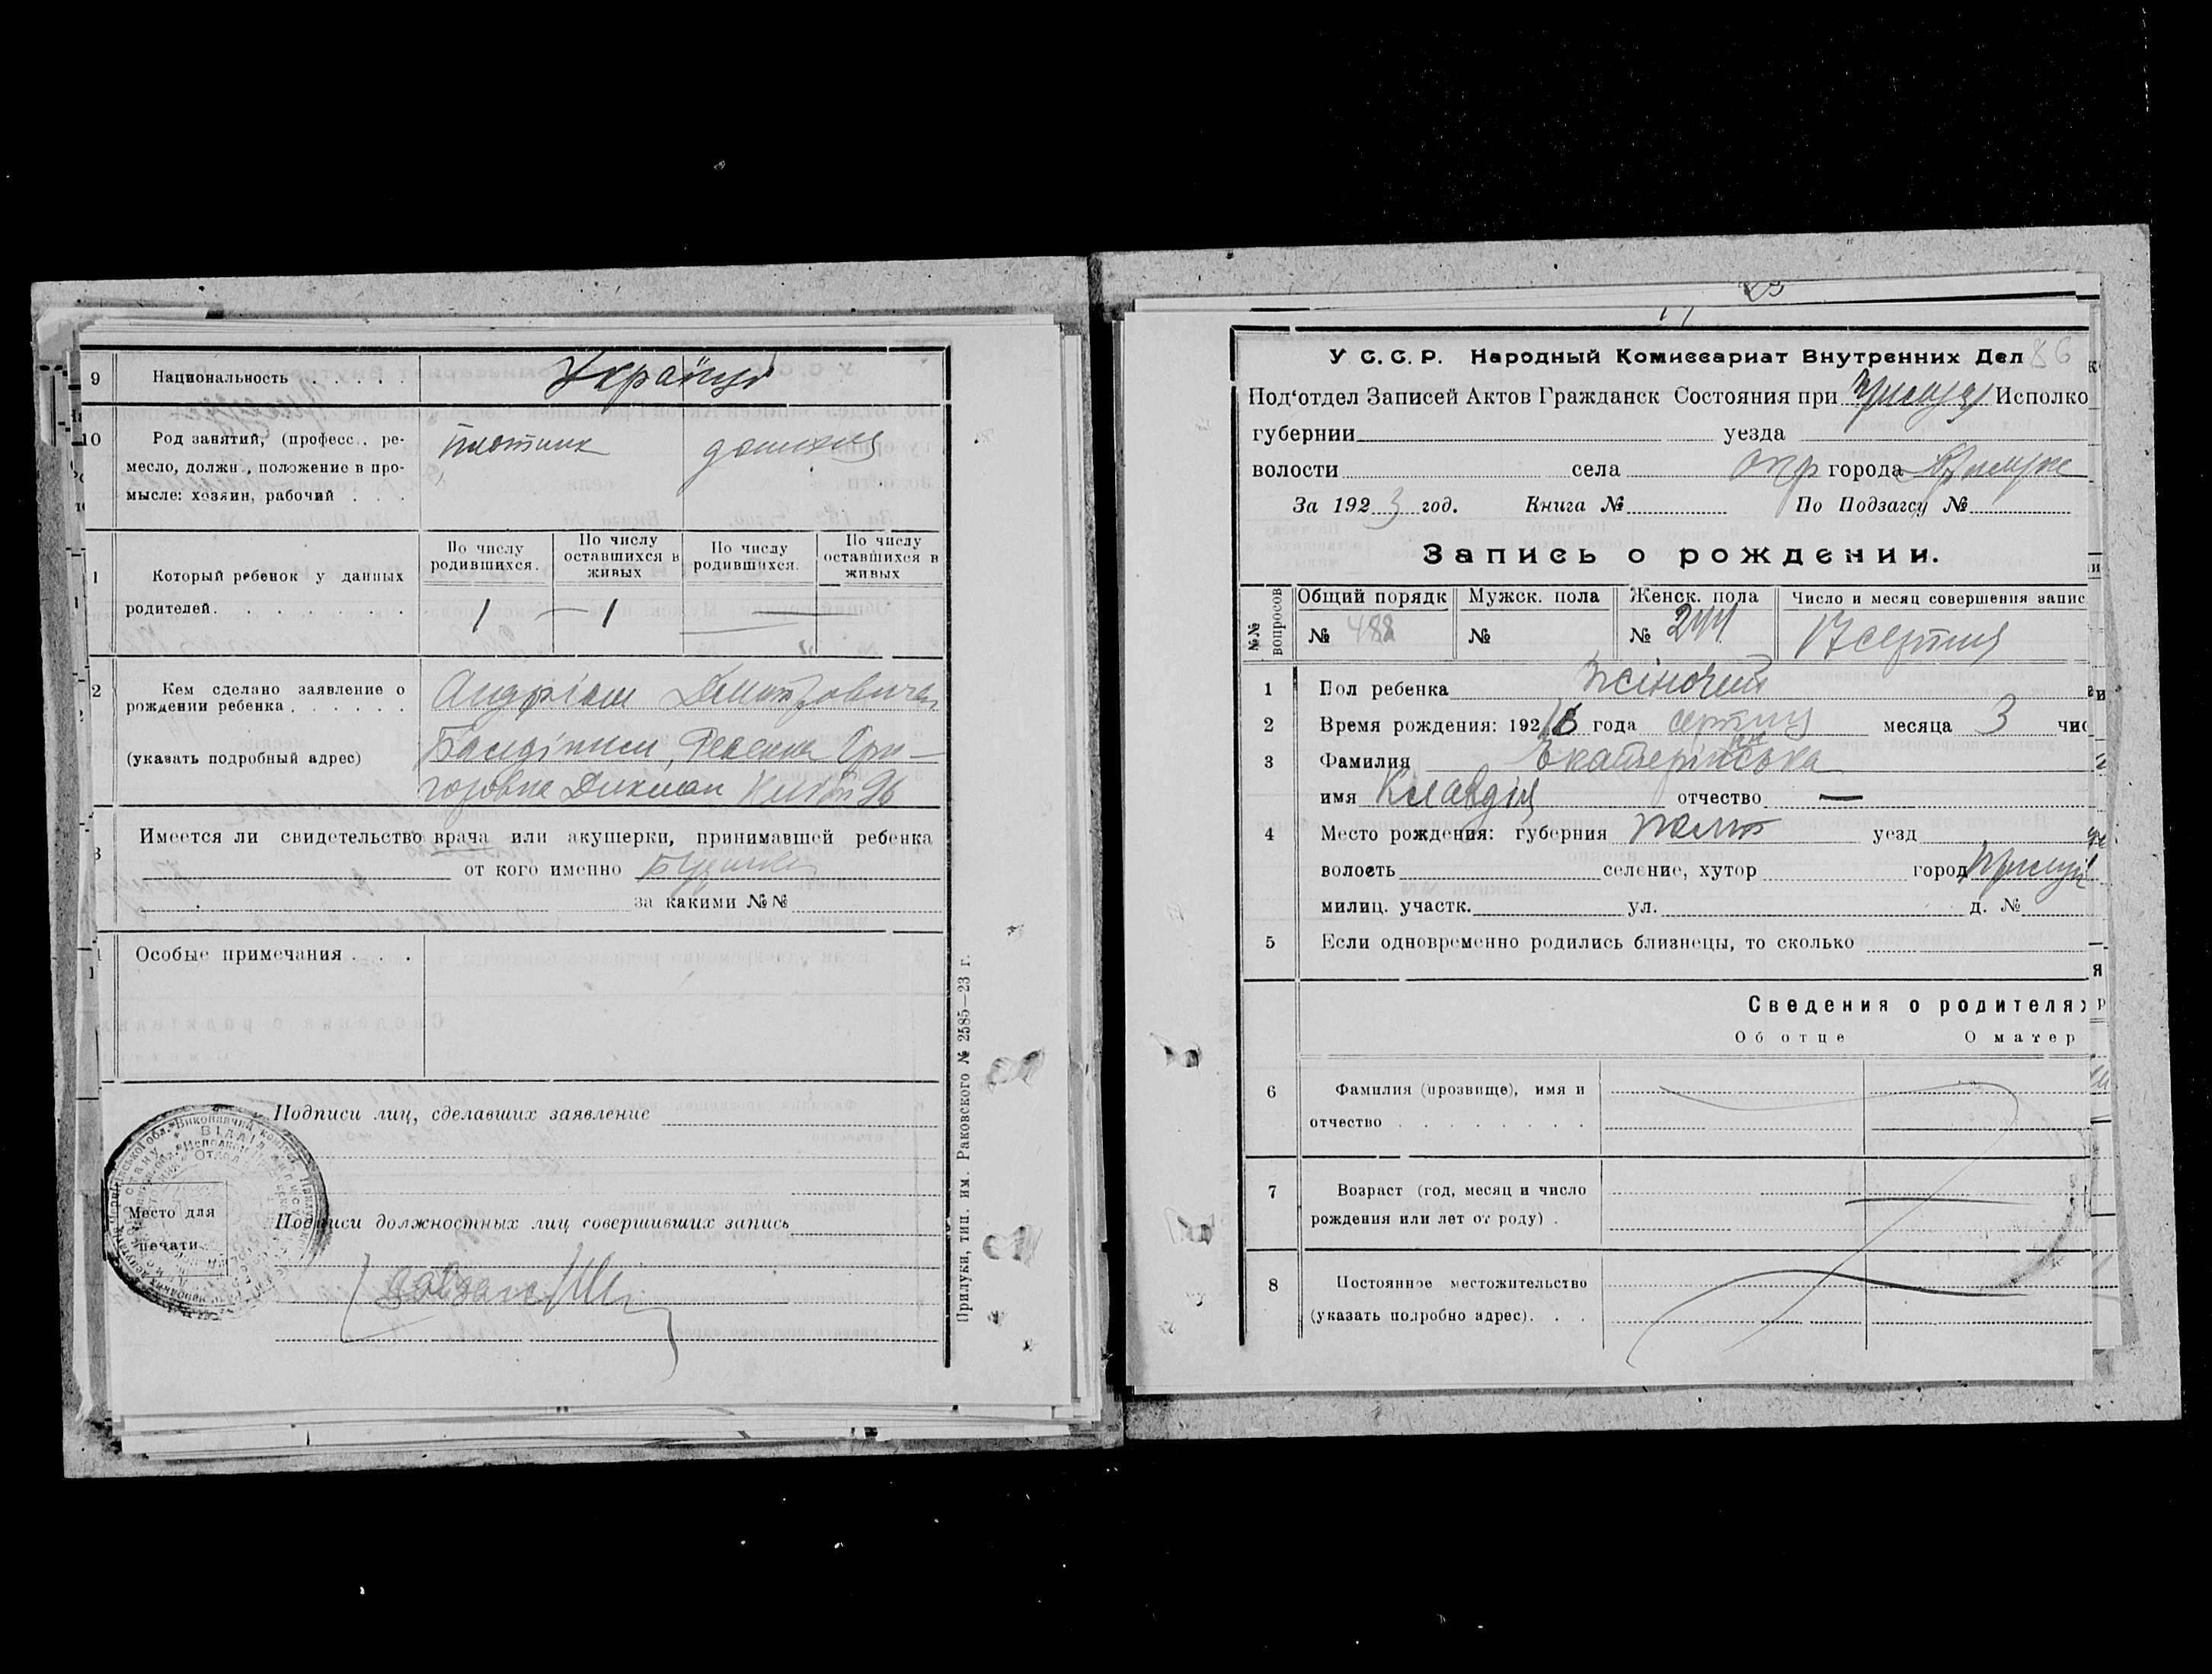 9 Национальность . . . . . Українці
10 Род занятий, (професс., ре-
месло, должн., положение в про-
мысле: хозяин, рабочий . . .
плотник
По числу родившихся.
По числу оставшихся в живых
По числу родившихся.
По числу оставшихся в живых
1 Который ребенок у данных
родителей. . . . . . . .
1 — 1
2 Кем сделано заявление о
рождении ребенка . . . . . .
(указать подробный адрес)
Андріем Дмитровичем
Григоровна Дикман 96
3 Имеется ли свидетельство врача или акушерки, принимавшей ребенка
от кого именно
за какими №№
Особые примечания . . .
Подписи лиц, сделавших заявление
Место для
печати.
Подписи должностных лиц совершивших запись
Прилуки, тип. им. Раковского № 2585—23 г.
86
У С. С. Р. Народный Комиссариат Внутренних Дел
Под‘отдел Записей Актов Гражданск Состояния при Исполко
губернии уезда
волости села окр города Прилуки
За 1923 год. Книга № По Подзагсу №
Запись о рождении.
№№ вопросов
Общий порядк Мужск. пола Женск. пола Число и месяц совершения запис
№ 488 № № 244 17 серпня
1 Пол ребенка жіночий
2 Время рождения: 192 года серпня месяца 3 чис
3 Фамилия Екатерінська
имя Клавдія отчество —
4 Место рождения: губерния Полт уезд
волость селение, хутор город Прилуки
милиц. участк. ул. д. №
5 Если одновременно родились близнецы, то сколько
Сведения о родителях
Об отце О матер
6 Фамилия (прозвище), имя и
отчество . . . . . . . .
7 Возраст (год, месяц и число
рождения или лет от роду) .
8 Постоянное местожительство
(указать подробно адрес). . .